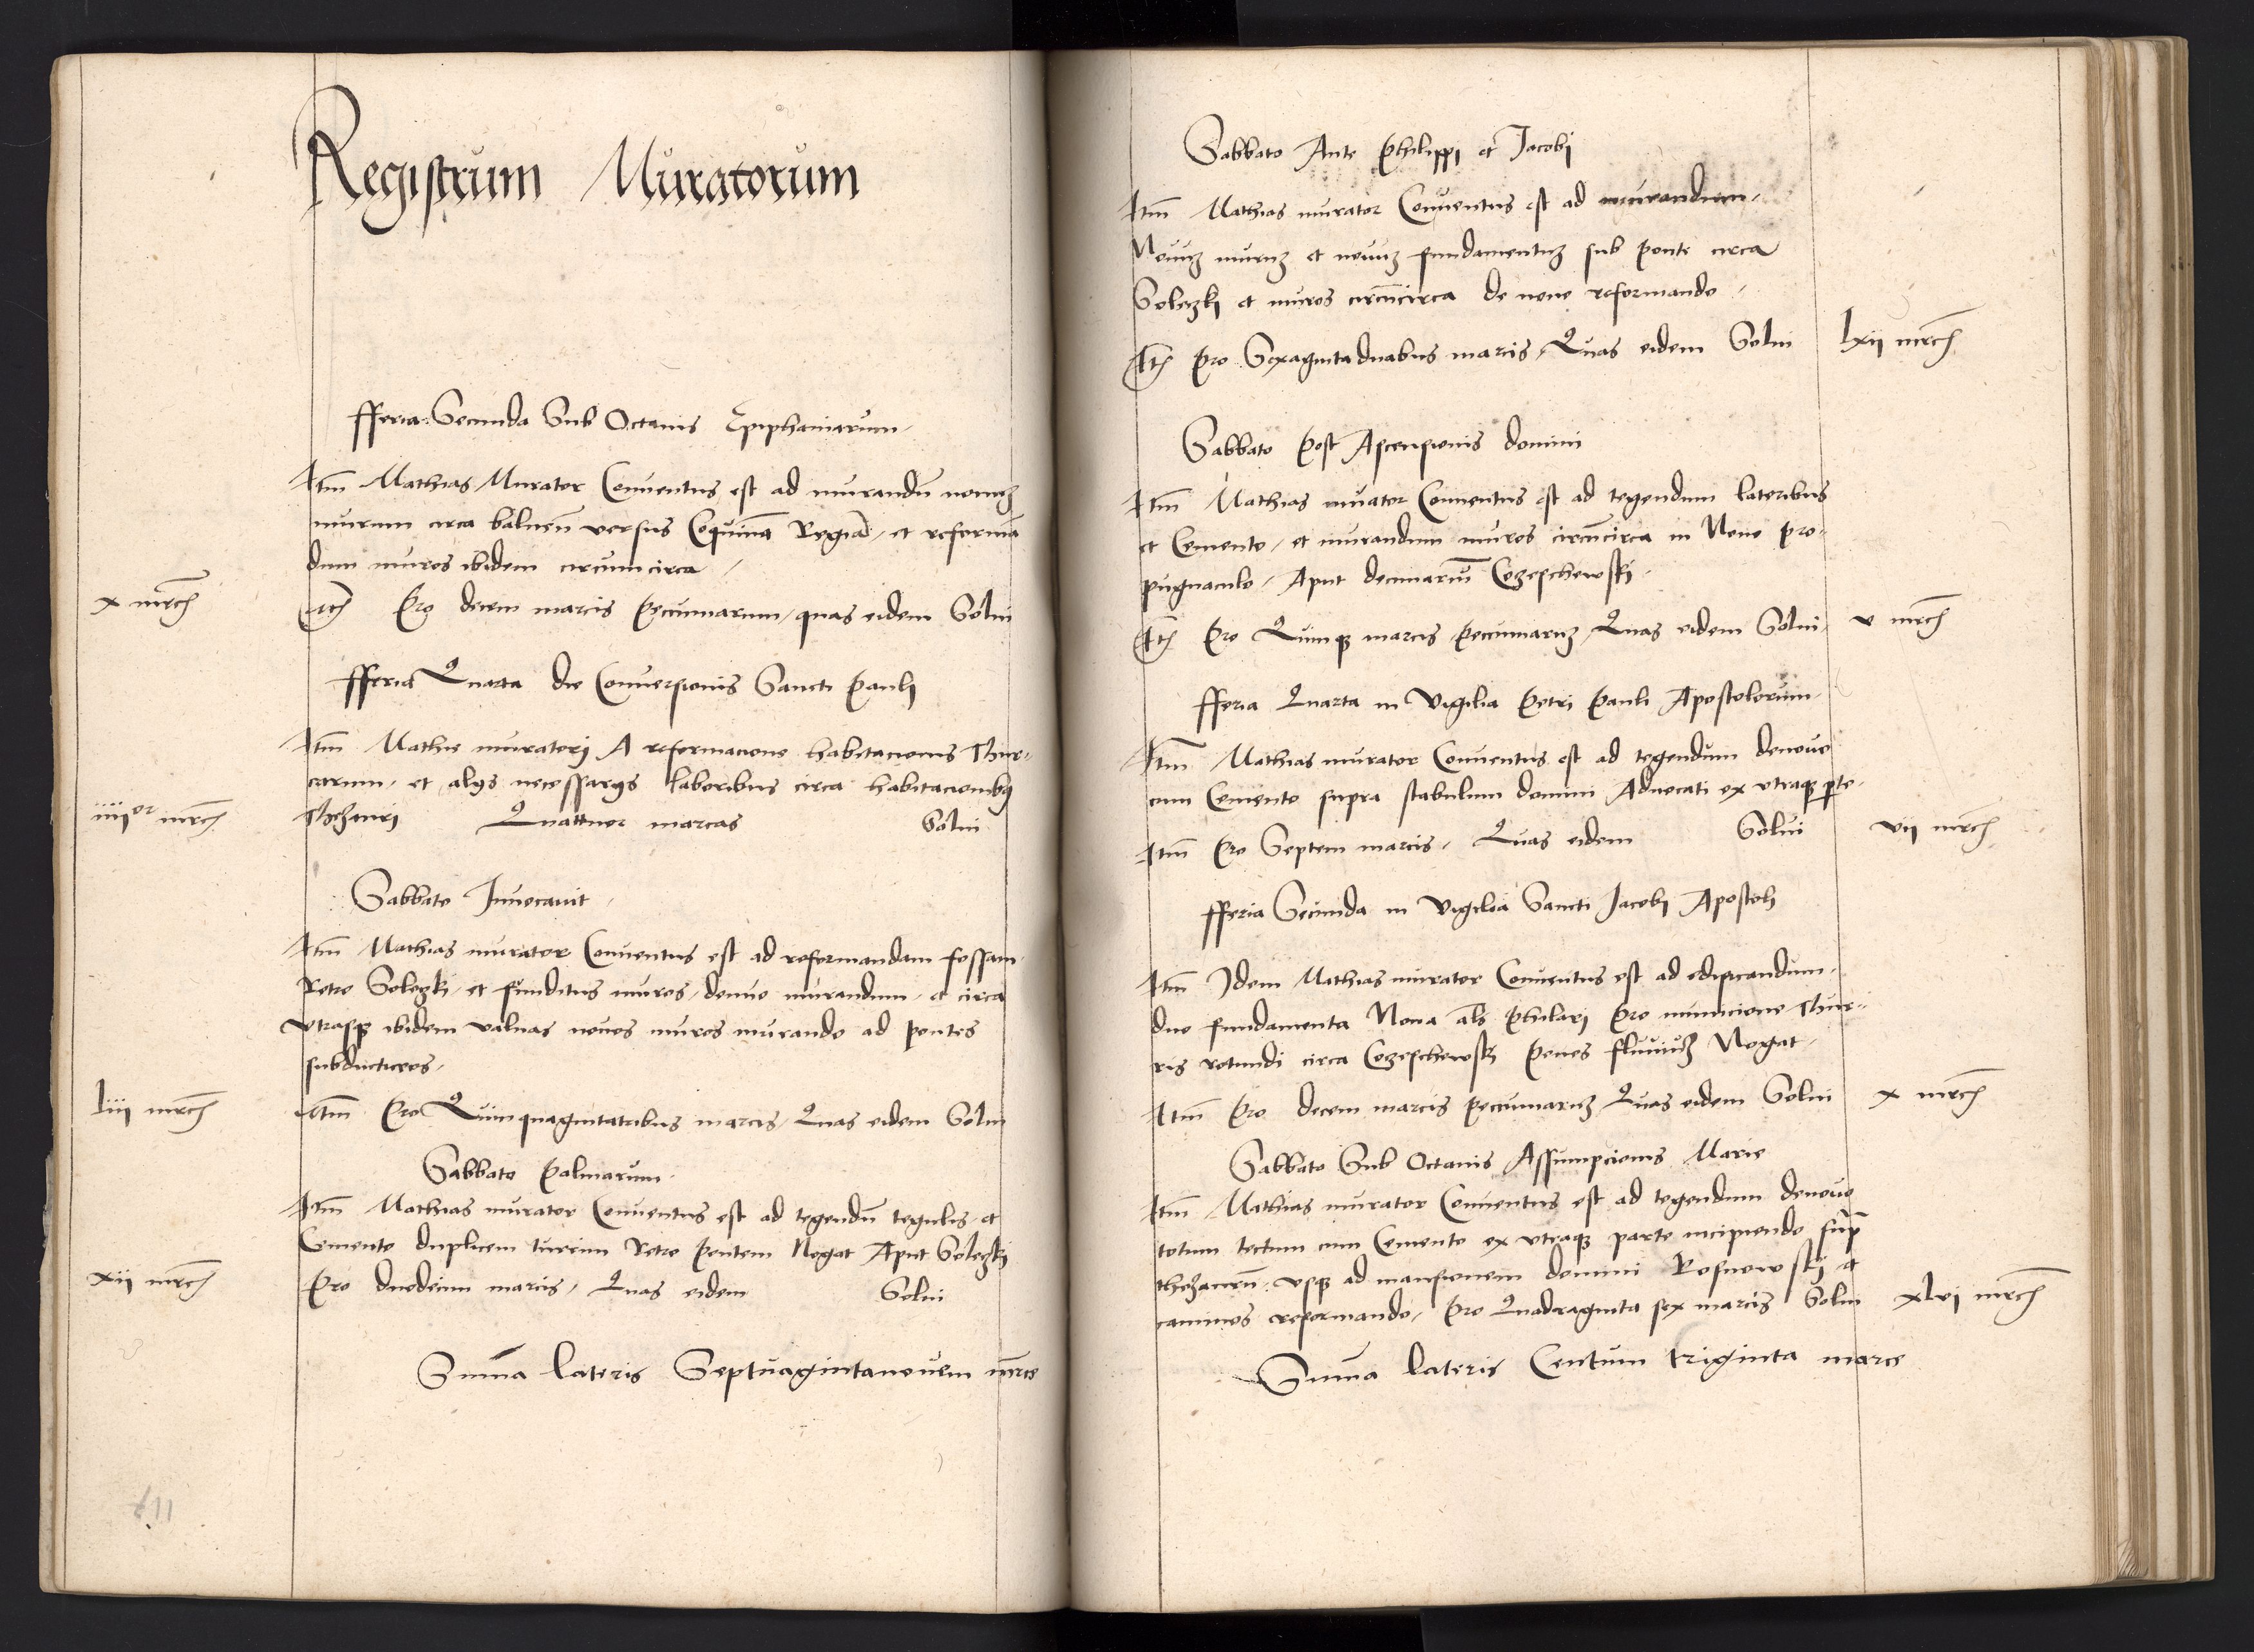 Registrum Muratorum
fferia Secunda Sub Octauis Epiphaniarum
Itm̄ Mathias Murator Conuentus est ad murandū nouuȝ
murum circa balneū versus Coquinā Regiā et reformā
dum muros ibidem circumcirca
x mrc̄
Itȝ Pro decem marcis pecuniarum quas eidem Solui
fferia Quarta die Conuersionis Sancti Pauli
Itm̄ Mathie muratorj A reformacione habitacionis Thur-
carum et alys necessarys laboribus circa habitacionibȝ
iiiior mrc̄
Thezauri Quattuor marcas Solui
Sabbato Inuocauit
Itm̄ Mathias murator Conuentus est ad reformandam fossam
Retro Soleczki et funditus muros denuo murandum et circa
vtrasqȝ ibidem valuas nouos muros murando ad pontes
subducticeos
liii mrc̄
Itm̄ Pro Quinquagintatribus marcis Quas eidem Solui
Sabbato Palmarum
Itm̄ Mathias murator Conuentus est ad tegendū tegulis et
Cemento duplicem turrim Retro pontem Nogat Aput Soleczki
xii mrc̄
Pro duodecim marcis Quas eidem Solui
Sum̄a lateris Septuagintanouem mrce
611
Sabbato Ante Philippi et Jacobi
Itm̄ Mathias murator Conuentus est ad murandum
Nouuȝ muruȝ et nouuȝ fundamentuȝ sub ponte circa
Soleczkj et muros circūcirca de nouo reformando
Itȝ Pro Sexagintaduabus marcis Quas eidem Solui lxii mrc̄
Sabbato Post Ascensionis domini
Itm̄ Mathias muator Conuentus est ad tegendum lateribus
et Cemento et murandum muros circūcirca in Nouo pro-
pugnaculo Aput decimariū Czeschewskj
Itȝ Pro Quinqȝ marcis pecuniaruȝ Quas eidem Solui v mrc̄
fferia Quarta in Vigilia Petri Pauli Apostolorum
Itm̄ Mathias murator Conuentus est ad tegendum denouo
cum Cemento supra stabulum domini Aduocati ex vtraqȝ pte
Itm̄ Pro Septem marcis Quas eidem Solui vii mrc̄
fferia Secunda in Vigilia Sancti Jacobi Apostoli
Itm̄ Idem Mathias murator Conuentus est ad edificandum
duo fundamenta Noua als Philarj Pro municione Thur-
ris rotundi circa Czeschewskj penes fluuiuȝ Nogat
Itm̄ Pro decem marcis pecuniaruȝ Quas eidem Solui x mrc̄
Sabbato Sub Octauis Assumpcionis Marie
Itm̄ Mathias murator Conuentus est ad tegendum denouo
totum tectum cum Cemento ex vtraqȝ parte incipiendo sup̄
thezaurū vsqȝ ad mansionem domini Rosnowskj et
caminos reformando Pro Quadraginta sex marcis Solui xlvj mrc̄
Sum̄a lateris Centum triginta marce